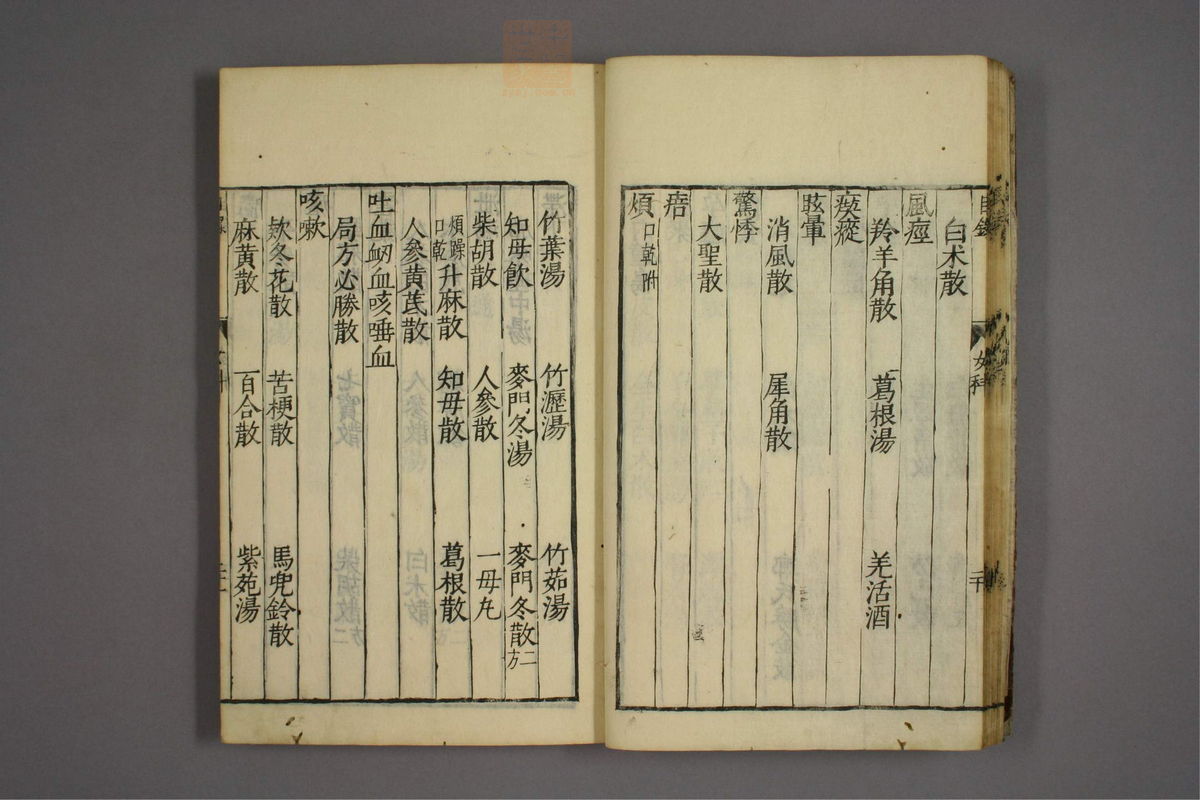 白朮散
風痙
羚羊角散 葛根湯 羌活酒
瘈瘲
眩暈
消風散 犀角散
驚悸
大聖散
痦
煩 口乾附
竹葉湯 竹瀝湯 竹茹湯
知母飲 麥門冬湯 麥門冬散 二方
柴胡散 人參散 一母丸
煩躁口乾 升麻散 知母散 葛根散
人參黃芪散
吐血衂血咳唾血
局方必勝散
咳嗽
欵冬花散 苦梗散 馬兜鈴散
麻黃散 百合散 紫菀湯